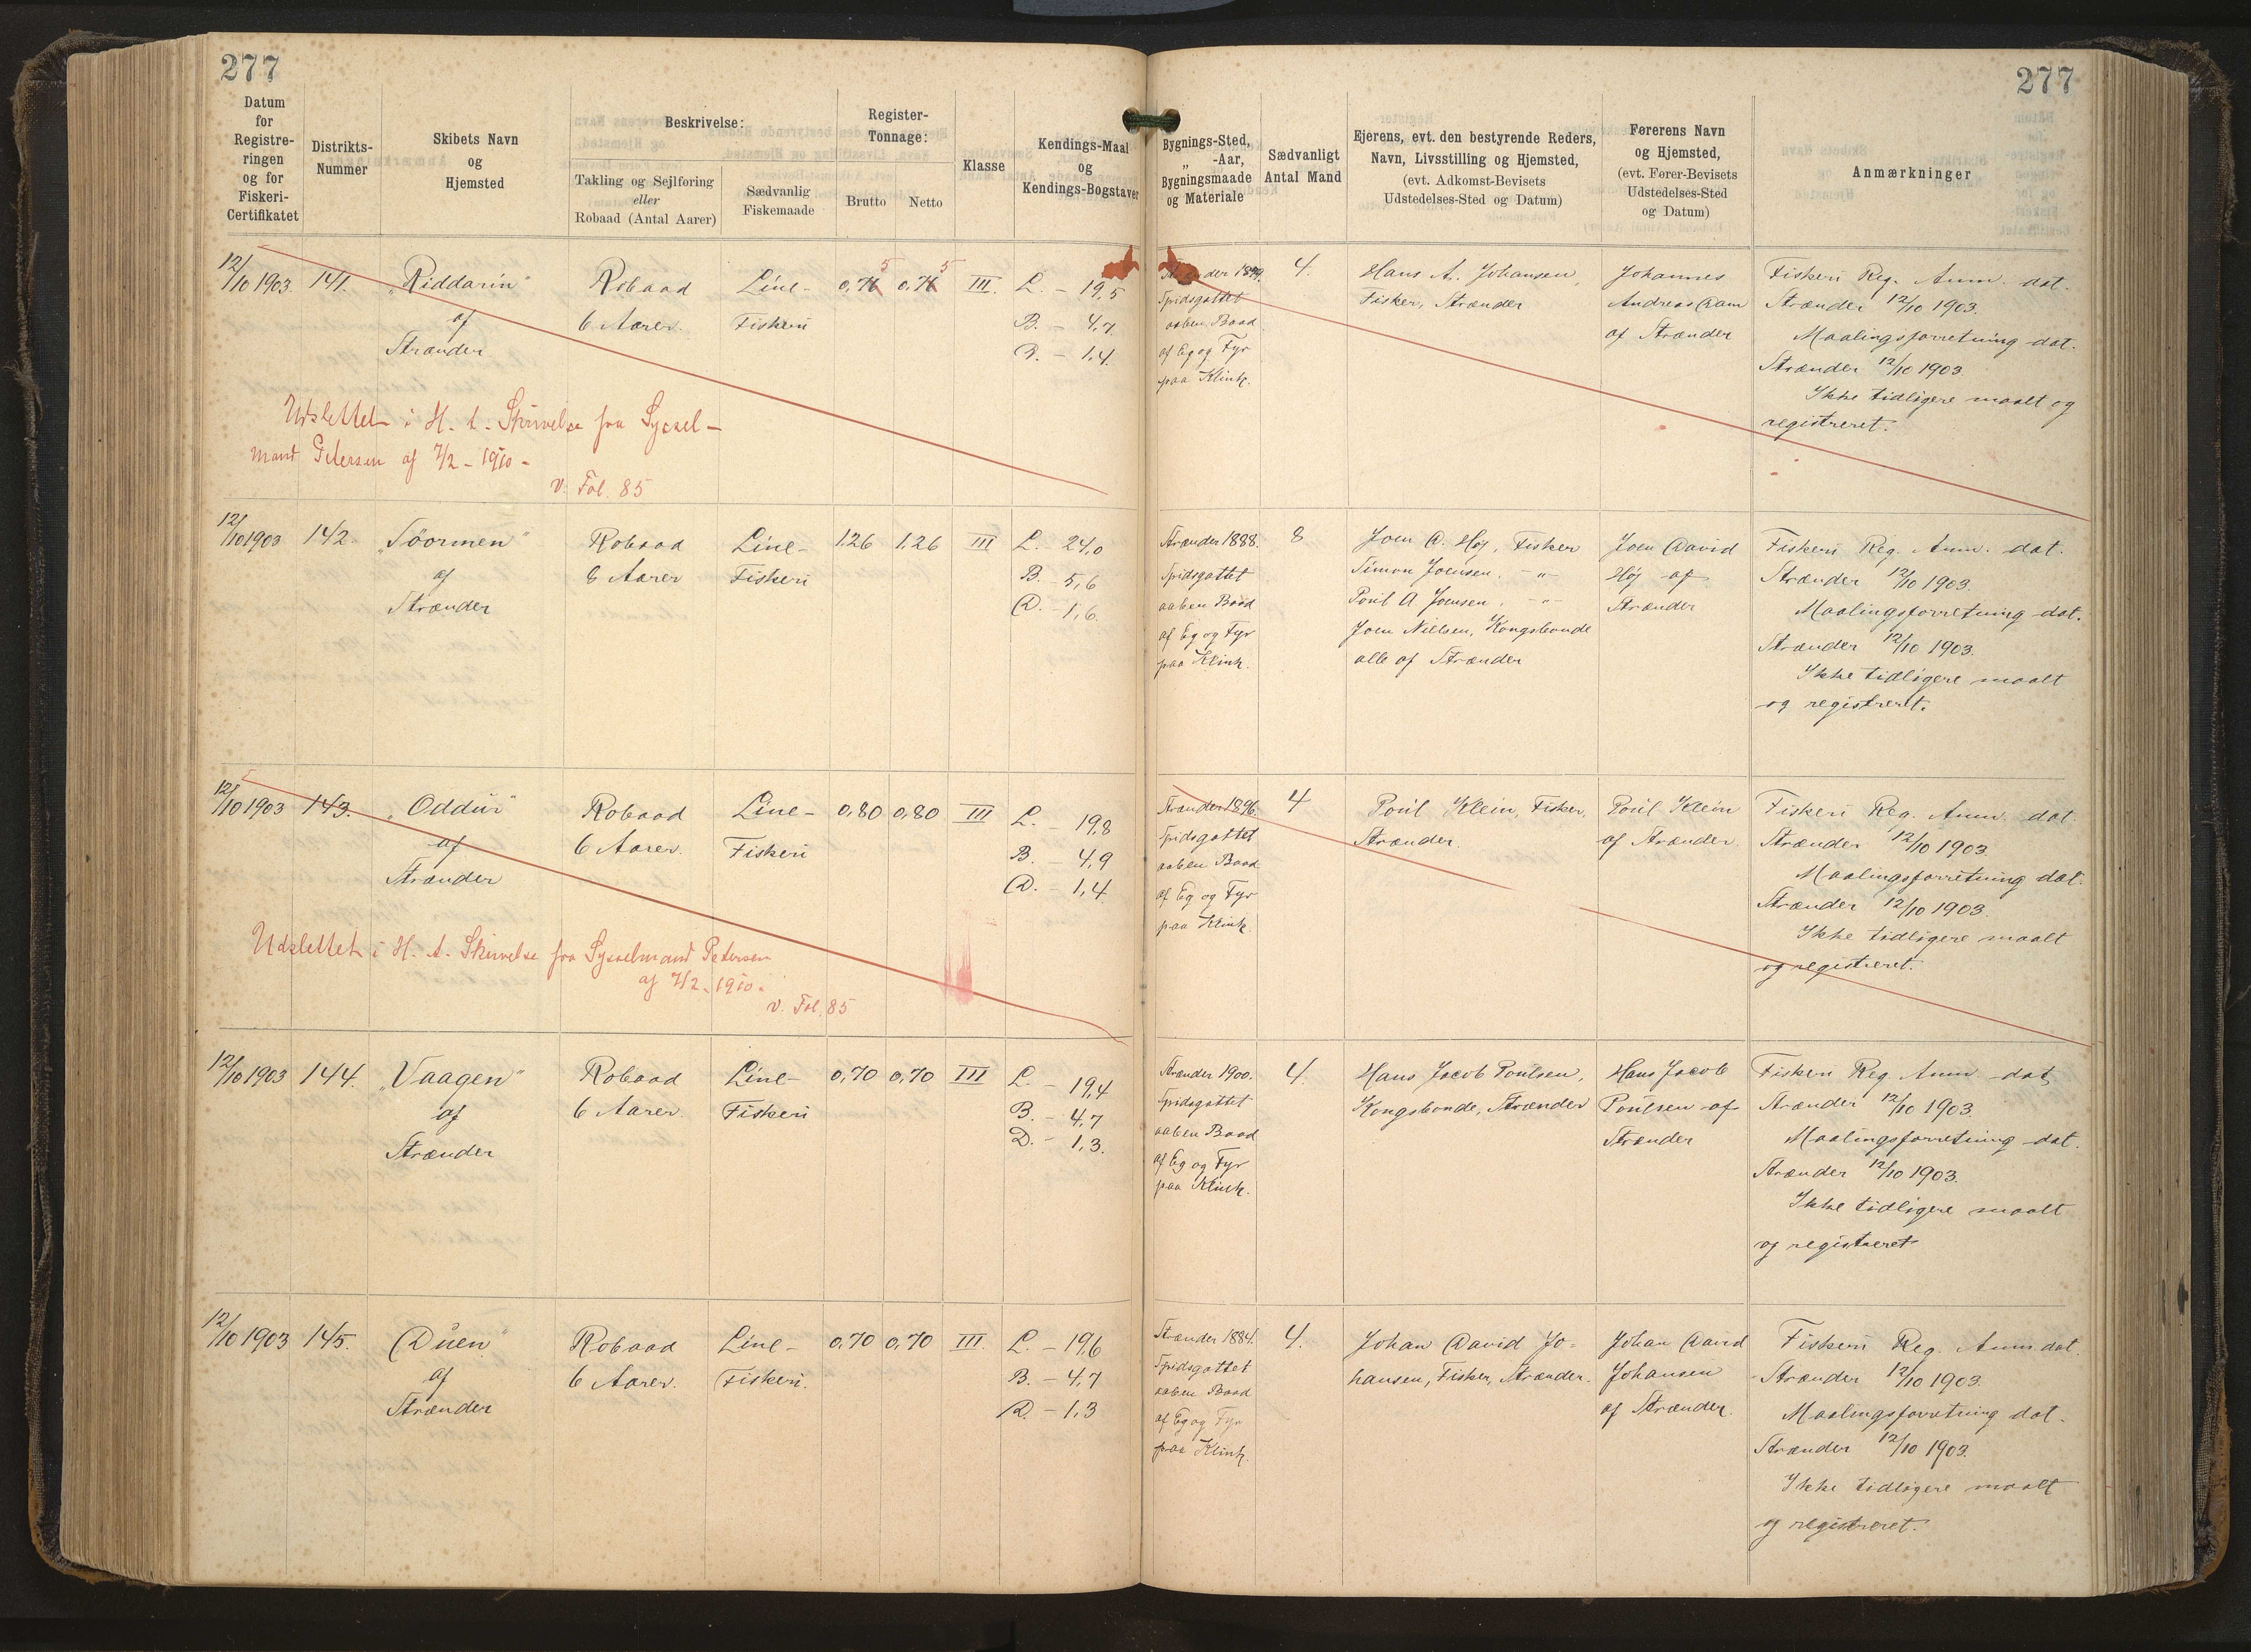 277
277
Datum
for
Registre-
ringen
og for
Fiskeri-
Certifikatet
Distrikts-
Nummer
Skibets Navn
og
Hjemsted
Beskrivelse:
Takling og Sejlføring
eller
Robaad (Antal Aarer)
Sædvanlig
Fiskemaade
Register-
Tonnage:
Brutto
Netto
Klasse
Kendings-Maal
og
Kendings-Bogstaver
Bygnings-Sted,
„ -Aar,
Bygningsmaade
og Materiale
Sædvanligt
Antal Mand
Ejerens, evt. den bestyrende Reders,
Navn, Livsstilling og Hjemsted,
(evt. Adkomst-Bevisets
Udstedelses-Sted og Datum)
Førerens Navn
og Hjemsted,
(evt. Fører-Bevisets
Udstedelses-Sted
og Datum)
Anmærkninger
12/10 1903. 141. „Riddarin"
af
Strænder
Robaad
6 Aarer.
Line-
Fiskeri
0,74 5 0,74 5 III. L. - 19,5
B. - 4,7
D. - 1,4.
Strænder 1899.
Spidsgattet
aaben Baad
af Eg og Fyr
paa Klink.
4.
Hans A. Johansen,
Fisker, Strænder
Johannes
Andreas Dam
af Strænder
Fiskeri Reg. Anm. dat.
Strænder 12/10 1903.
Maalingsforretning dat.
Strænder 12/10 1903.
Ikke tidligere maalt og
registreret.
Udslettet i H. t. Skrivelse fra Syssel-
mand Petersen af 7/2 - 1910 -
v. Fol. 85
12/10 1903 142. „Söormen"
af
Strænder
Robaad
8 Aarer
Line-
Fiskeri
1,26 1,26 III L. - 24,0
B. - 5,6
D. - 1,6.
Strænder 1888.
Spidsgattet
aaben Baad
af Eg og Fyr
paa Klink.
8
Joen D. Høj, Fisker
Simon Joensen, -„-
Poul A Joensen, -„-
Joen Nielsen, Kongsbonde
alle af Strænder
Joen David
Høj af
Strænder
Fiskeri Reg. Anm. dat.
Strænder 12/10 1903.
Maalingsforretning dat.
Strænder 12/10 1903.
Ikke tidligere maalt
og registreret.
12/10 1903 143. „Oddur"
af
Strænder
Robaad
6 Aarer.
Line-
Fiskeri
0,80 0,80 III L. - 19,8
B. - 4,9
D. - 1,4.
Strænder 1896.
Spidsgattet
aaben Baad
af Eg og Fyr
paa Klink.
4
Poul Klein, Fisker,
Strænder.
Poul Klein
af Strænder.
Fiskeri Reg. Anm. dat.
Strænder 12/10 1903.
Maalingsforretning dat.
Strænder 12/10 1903.
Ikke tidligere maalt
og registreret.
Udslettet i H. t. Skrivelse fra Sysselmand Petersen
af 7/2 - 1910.
v. Fol. 85
12/10 1903 144. „Vaagen"
af
Strænder
Robaad
6 Aarer.
Line-
Fiskeri
0,70 0,70 III L. - 19,4
B. - 4,7
D. - 1,3.
Strænder 1900.
Spidsgattet
aaben Baad
af Eg og Fyr
paa Klink.
4.
Hans Jacob Poulsen,
Kongsbonde, Strænder
Hans Jacob
Poulsen af
Strænder
Fiskeri Reg. Anm. dat.
Strænder 12/10 1903.
Maalingsforretning dat.
Strænder 12/10 1903.
Ikke tidligere maalt
og registreret
12/10 1903 145. „Duen"
af
Strænder
Robaad
6 Aarer.
Line-
Fiskeri.
0,70 0,70 III. L. - 19,6
B. - 4,7
D. - 1,3
Strænder 1884.
Spidsgattet
aaben Baad
af Eg og Fyr
paa Klink.
4.
Johan David Jo-
hansen, Fisker, Strænder.
Johan David
Johansen
af Strænder.
Fiskeri Reg. Anm. dat.
Strænder 12/10 1903.
Maalingsforretning dat.
Strænder 12/10 1903.
Ikke tidligere maalt
og registreret.